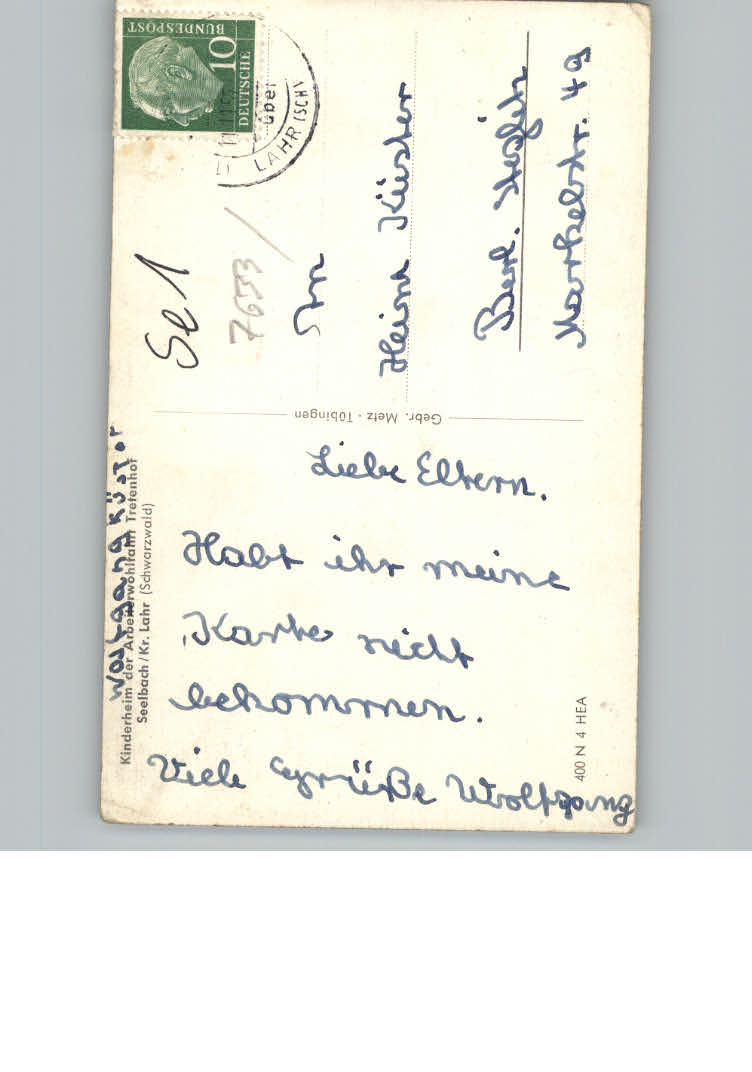 Wolfgang Küster
Kinderheim der Arbeiterwohlfahrt Tretenhof
Seelbach/Kr. Lahr (Schwarzwald)
Liebe Eltern.
Habt ihr meine
Karte nicht
bekommen.
Viele Grüße Wolfgang
400 N 4 HEA
Gebr. Metz · Tübingen
DEUTSCHE
BUNDESPOST
10
über
LAHR (SCHW
Se 1
7633
An
Heinz Küster
Berl. Steglitz
Markelstr. 49